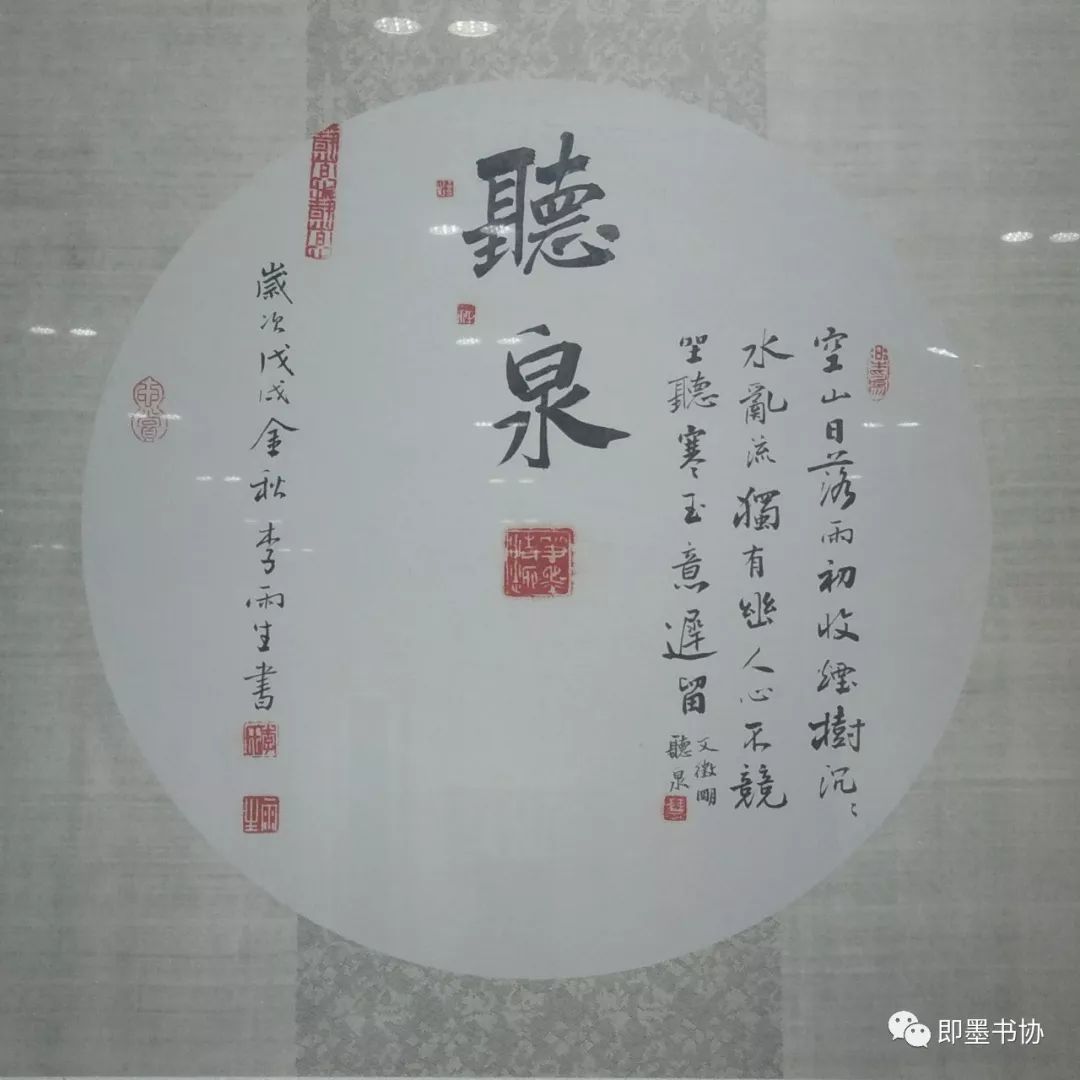 空山日落雨初收煙樹沉〻
水亂流獨有幽人心不競
坐聽寒玉意遲留
文徵明
聽泉
聽泉
歲次戊戌金秋李雨生書
雨生
即墨书协